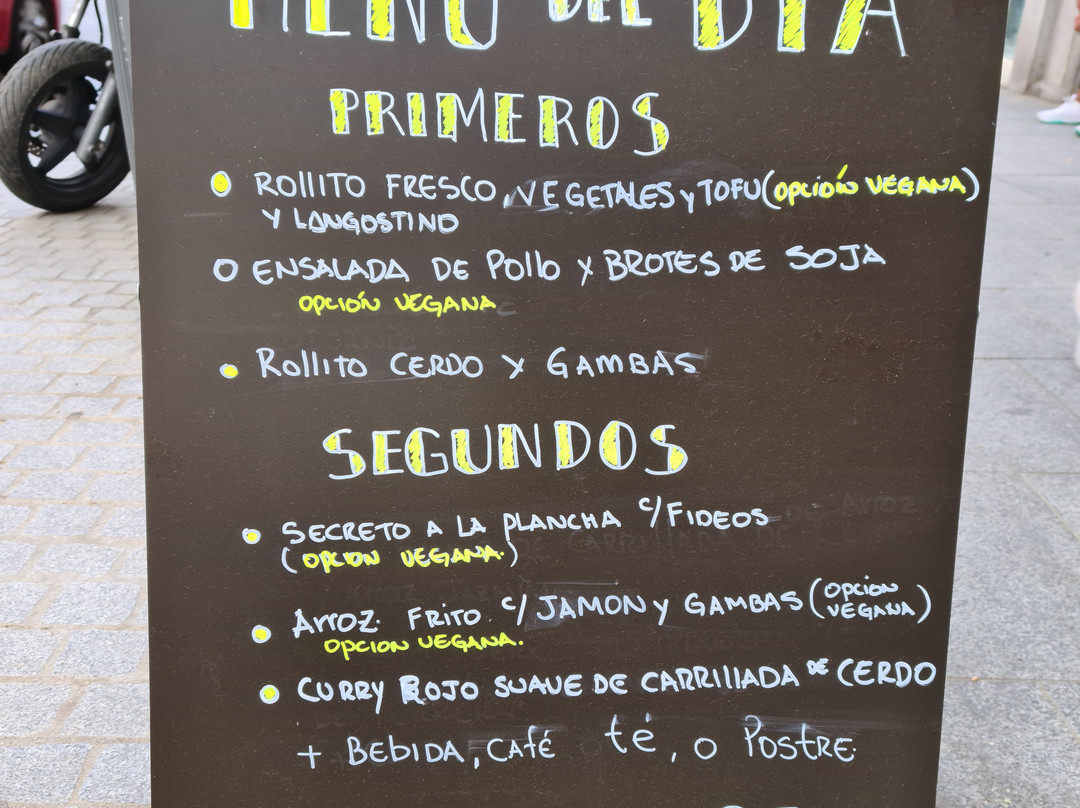 MENÚ DEL DÍA
PRIMEROS
ROllITO FRESCO VEGETALES y TOFU (OPCIÓN VEGANA)
Y LANGOSTINO
ENSALADA DE Pollo y BROTES DE SOJA
OPCIÓN VEGANA
Rollito CERDO y GAMBAS
SEGUNDOS
SECRETO A LA PLANCHA c/FIDEOS
(OPCION VEGANA.)
Arroz. FRITO c/JAMON y GAMBAS (OPCION VEGANA)
OPCION VEGANA.
CURRY ROJO SUAVE DE CARRIllADA DE CERDO
+ BEBIDA, CAfé té, o POSTRE.